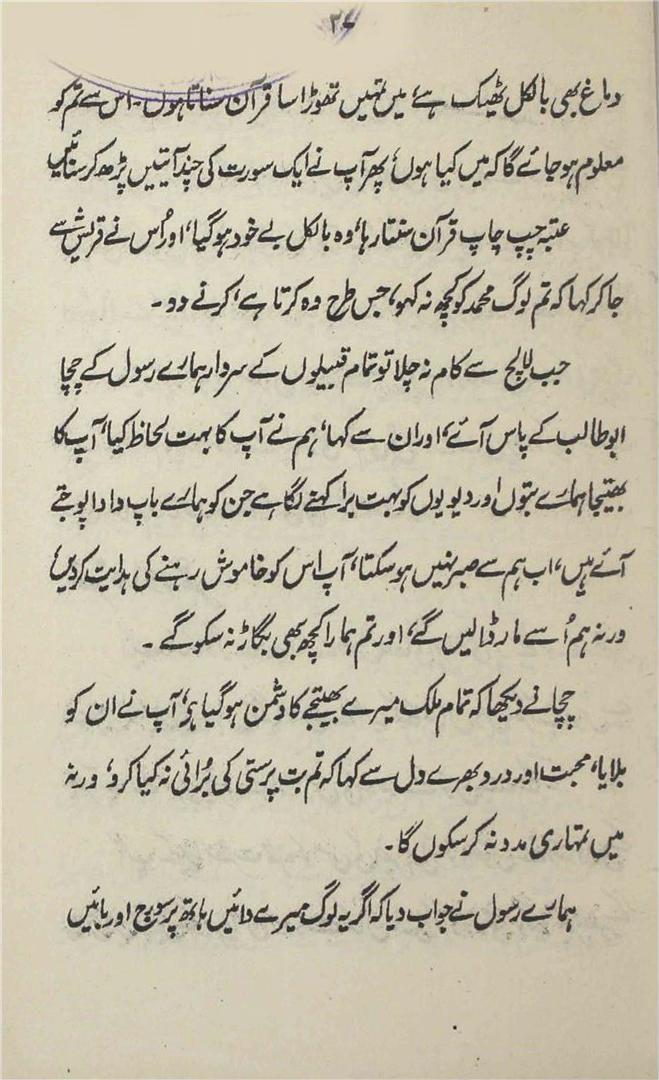 ۲۷
دماغ بھی بالکل ٹھیک ہے، میں تمہیں تھوڑا سا قرآن سناتا ہوں۔ اس سے تم کو
معلوم ہو جائے گا کہ میں کیا ہوں، پھر آپ نے ایک سورت کی چند آیتیں پڑھ کر سنائیں
عتبہ چپ چاپ قرآن سنتا رہا، وہ بالکل بے خود ہو گیا، اور اُس نے قریش سے
جا کر کہا کہ تم لوگ محمد کو کچھ نہ کہو، جس طرح وہ کرتا ہے، کرنے دو۔
جب لالچ سے کام نہ چلا تو تمام قبیلوں کے سردار ہمارے رسول کے چچا
ابو طالب کے پاس آئے، اور ان سے کہا، ہم نے آپ کا بہت لحاظ کیا، آپ کا
بھتیجا ہمارے بتوں اور دیویوں کو بہت برا کہنے لگا ہے جن کو ہمارے باپ دادا پوجتے
آئے ہیں، اب ہم سے صبر نہیں ہو سکتا، آپ اس کو خاموش رہنے کی ہدایت کر دیں،
ورنہ ہم اُسے مار ڈالیں گے، اور تم ہمارا کچھ بھی بگاڑ نہ سکو گے۔
چچا نے دیکھا کہ تمام ملک میرے بھتیجے کا دشمن ہو گیا ہے، آپ نے ان کو
بلایا، محبت اور درد بھرے دل سے کہا کہ تم بت پرستی کی بُرائی نہ کیا کرو، ورنہ
میں تمہاری مدد نہ کر سکوں گا۔
ہمارے رسول نے جواب دیا کہ اگر یہ لوگ میرے دائیں ہاتھ پر سورج اور بائیں